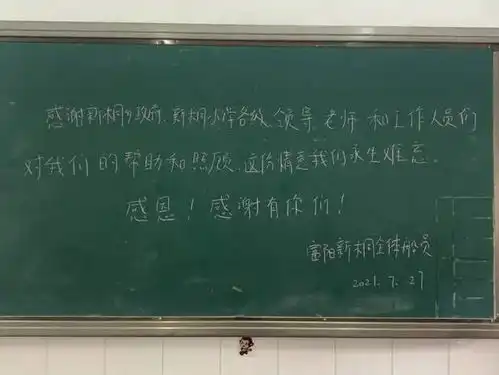 感谢新桐乡政府、新桐小学各级领导老师和工作人员们
对我们的帮助和照顾,这份情意我们永生难忘。
感恩!感谢有你们!
富阳新桐全体船员
2021.7.27